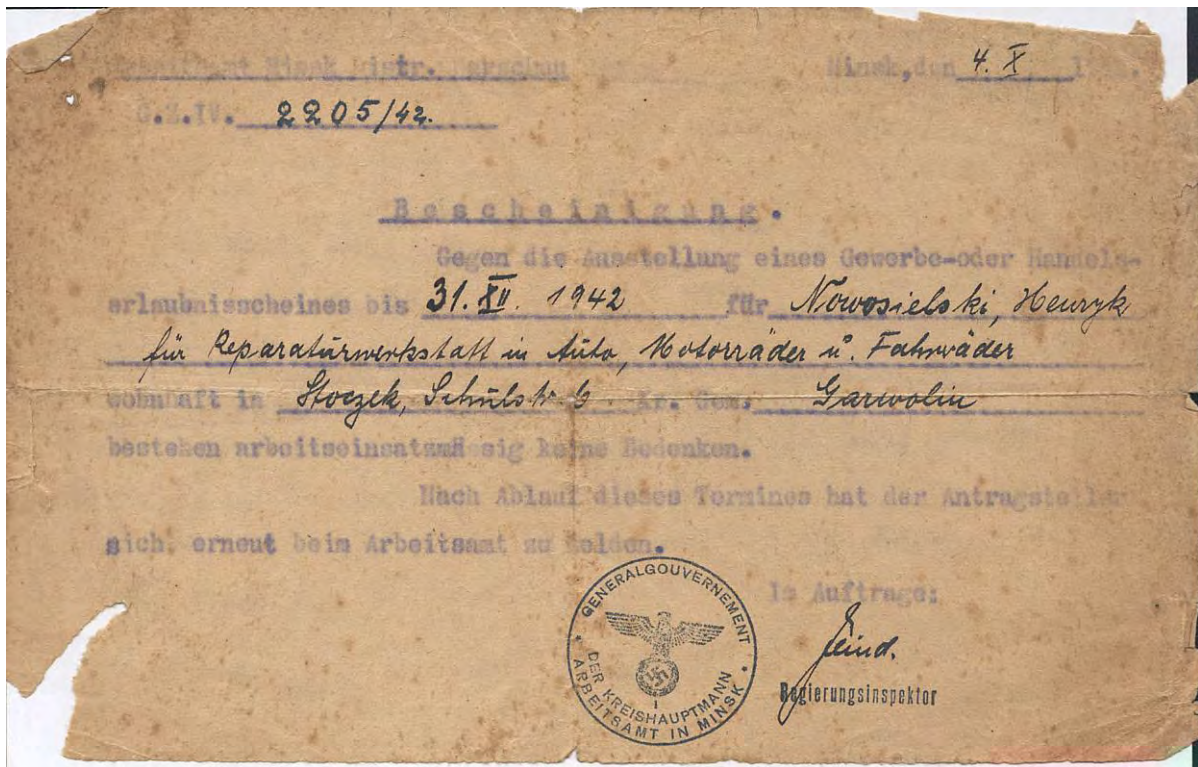 Arbeitsamt Minsk Distr. Warschau Minsk, den 4. X 1
G.Z.IV. 2205/42.
Bescheinigung.
Gegen die Ausstellung eines Gewerbe-oder Handels-
erlaubnisscheines bis 31. XII. 1942 für Nowosielski, Henryk
für Reparaturwerkstatt in Auto, Motorräder u. Fahrräder
wohnhaft in Stoczek, Schulstr 6. Kr. Gem. Garwolin
bestehen arbeitseinsatzmässig keine Bedenken.
Nach Ablauf dieses Termines hat der Antragsteller
sich erneut beim Arbeitsamt zu melden.
Im Auftrage:
Regierungsinspektor
GENERALGOUVERNEMENT
DER KREISHAUPTMANN
1
ARBEITSAMT IN MINSK